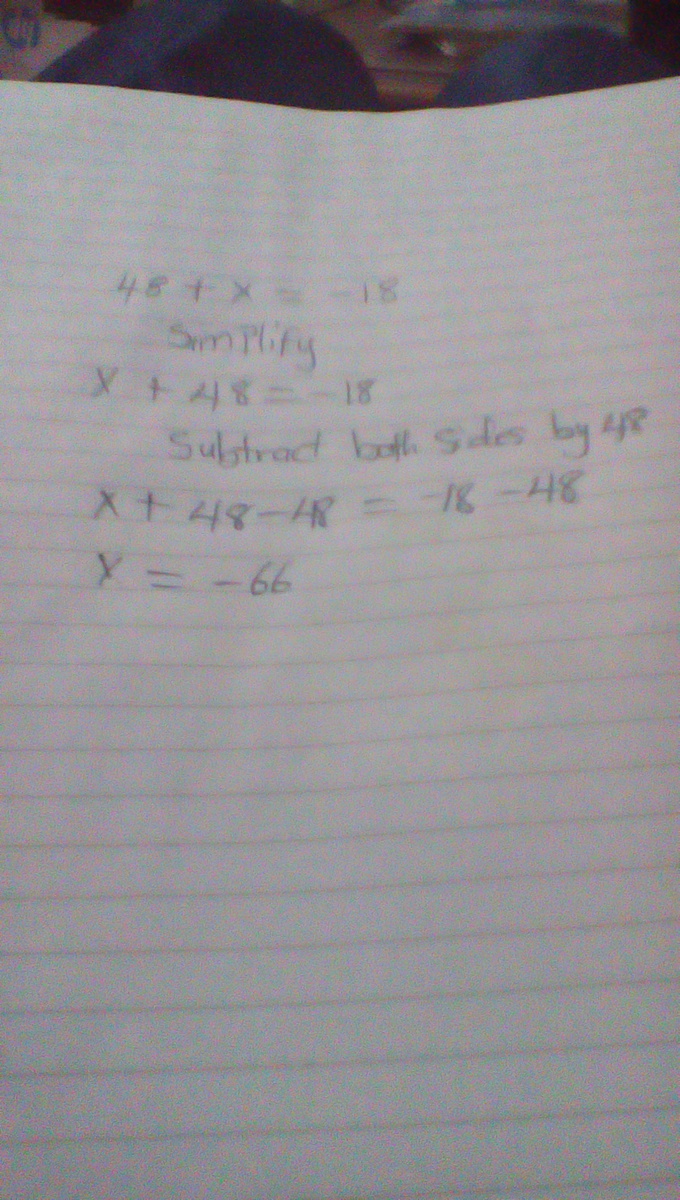 48 + x = -18
Simplify
x + 48 = -18
Subtract both sides by 48
x + 48 - 48 = -18 - 48
x = -66